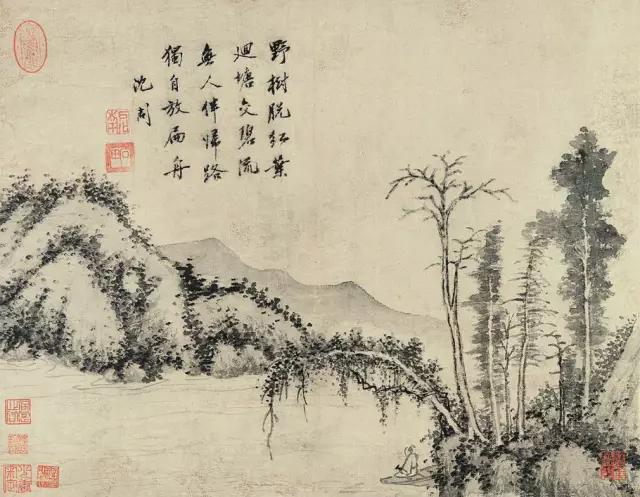 野樹脱紅葉
迴塘交碧流
無人伴歸路
獨自放扁舟
沈周